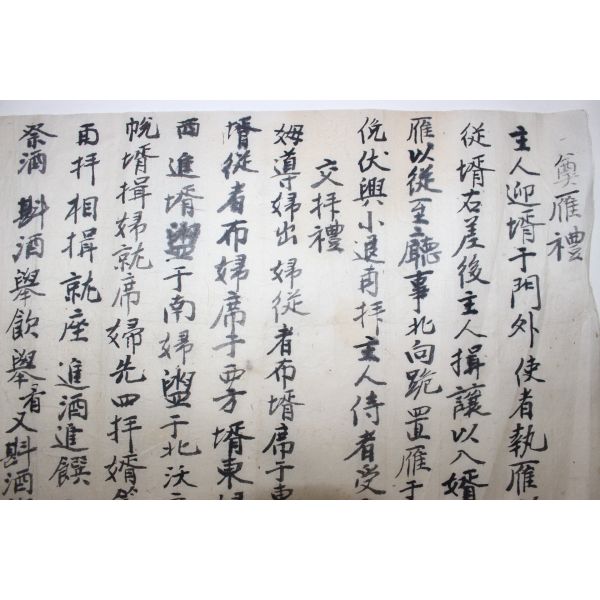 奠雁禮
主人迎壻于門外使者執雁
從壻右差後主人揖讓以入婿
雁以從至廳事北向跪置雁于
俛伏興小退再拜主人侍者受
交拜禮
姆導婦出婦從者布壻席于東
壻從者布婦席于西方壻東
西進壻盥于南婦盥于北沃
帨壻揖婦就席婦先四拜婿答
再拜相揖就座進酒進饌
祭酒斟酒舉飮舉肴又斟酒